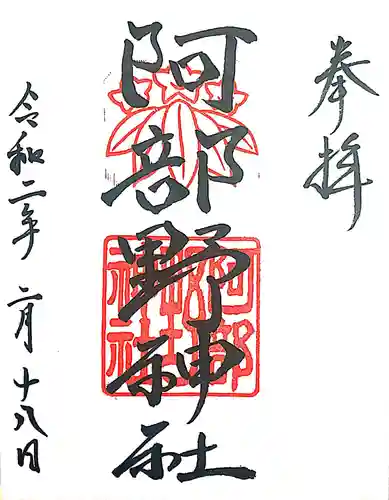 奉拝
阿部野神社
阿部野神社
令和二年二月十八日